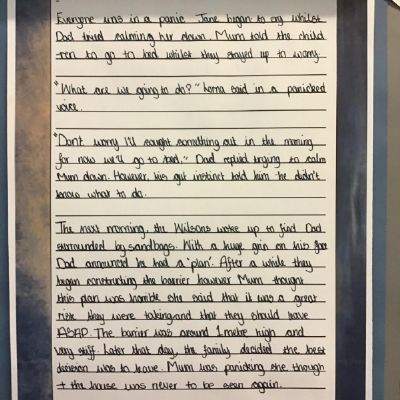 Everyone was in a panic. Jane began to cry whilst
Dad tried calming her down. Mum told the child
ren to go to bed whilst they stayed up to worry.
"What are we going to do?" Lorna said in a panicked
voice.
"Don't worry I'll sought something out in the morning
for now we'll go to bed." Dad replied trying to calm
Mum down. However, his gut instinct told him he didn't
know what to do.
The next morning, the Wilsons woke up to find Dad
surrounded by sandbags. With a huge grin on his face
Dad announced he had a 'plan'. After a while they
began constructing the barrier however Mum thought
this plan was horrible she said that it was a great
risk they were taking and that they should leave
ASAP. The barrier was around 1 metre high and
very stiff. Later that day, the family decided the best
decision was to leave. Mum was panicking she though
t the house was never to be seen again.